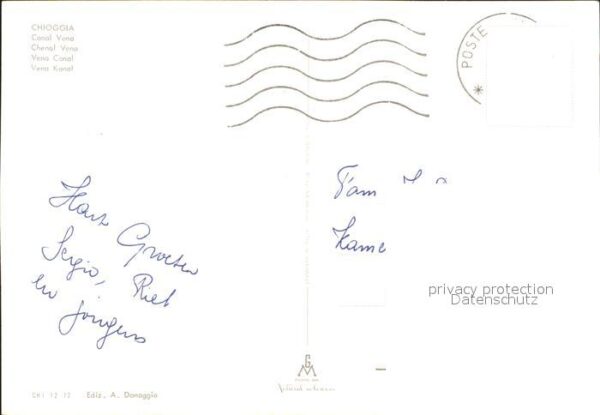 CHIOGGIA
Canal Vena
Chenal Vena
Vena Canal
Vena Kanal
POSTE
Hart Groeten
Sergio, Riet
en jongens
Fam
Kame
privacy protection
Datenschutz
CHI 12 72 Ediz. A. Donaggio